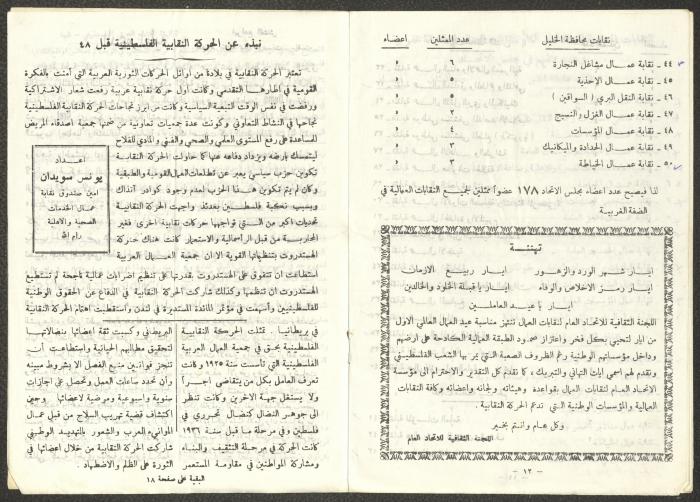 نقابات محافظة الخليل عدد الممثلين اعضاء
٤٤ - نقابة عمال مشاغل النجارة ٦
٤٥ - نقابة عمال الاحذية ٥
٤٦ - نقابة النقل البري ( السواقين ) ٥
٤٧ - نقابة عمال الغزل والنسيج ٥
٤٨ - نقابة عمال المؤسسات ٤
٤٩ - نقابة عمال الحدادة والميكانيك ٣
٥٠ - نقابة عمال الخياطة ٣
لذا فيصبح عدد اعضاء مجلس الاتحاد ١٧٨ عضواً ممثلين لجميع النقابات العمالية في
الضفة الغربية
تهنئة
ايار شهر الورد والزهور ايار ربيع الازمان
ايار رمز الاخلاص والوفاء ايار يا قبلة الخلود والخالدين
ايار يا عيد العاملين
اللجنة الثقافية للاتحاد العام لنقابات العمال تنتهز مناسبة عيد العمال العالمي الاول
من ايار لتحيي بكل فخر واعتزاز صمود الطبقة العمالية الكادحة على ارضهم
وداخل مؤسساتهم الوطنية رغم الظروف الصعبة التي يمر بها الشعب الفلسطيني
وتقدم لهم اسمى ايات التهاني والتبريك ، كما نقدم كل التقدير والاحترام الى مؤسسة
الاتحاد العام لنقابات العمال بقواعده وهيئاته ولجانه واعضائه وكافة النقابات
العمالية والمؤسسات الوطنية التي تدعم الحركة النقابية .
وكل عام وانتم بخير
اللجنة الثقافية للاتحاد العام
- ١٢ -
نبذه عن الحركة النقابية الفلسطينية قبل ٤٨
تعتبر الحركة النقابية في بلادنا من اوائل الحركات الثورية العربية التي آمنت بالفكرة
القومية في اطارها التقدمي وكانت اول حركة نقابية عربية رفعت شعار الاشتراكية
ورفضت في نفس الوقت التبعية السياسية وكانت من ابرز نجاحات الحركة النقابية الفلسطينية
نجاحها في النشاط التعاوني وكونت عدة جمعيات تعاونية من ضمنها جمعية اصدقاء المريض
للمساعدة على رفع المستوى العلمي والصحي والفني والمادي للفلاح
ليتمسك بارضه ويزداد دفاعه عنها كما حاولت الحركة النقابية
تكوين حزب سياسي يعبر عن تطلعات العمال القومية والطبقية
وكان لم يتم تكوين هذا الحزب لعدم وجود كوادر آنذاك
وبسبب نكبة فلسطين بعدئذ واجهت الحركة النقابية
تحديات اكبر من التي تواجهها حركات نقابية اخرى فغير
المحاربة من قبل الرأسمالية والاستعمار كانت هناك حركة
الهستدروت بتنظيماتها القوية الا ان جمعية العمال العربية
اعداد
يونس سويدان
امين صندوق نقابة
عمال الخدمات
الصحية والاهلية
رام الله
استطاعت ان تتفوق على الهستدروت بقدرتها على تنظيم اضرابات عمالية ناجحة لم تستطيع
الهستدروت ان تنظمها وكذلك شاركت الحركة النقابية في الدفاع عن الحقوق الوطنية
للفلسطينيين وأسهمت في مؤتمر المائدة المستديرة في لندن واستقطبت اهتمام الحركة النقابية
في بريطانيا . تمثلت الحركة النقابية
الفلسطينية بحق في جمعية العمال العربية
الفلسطينية التي تأسست سنة ١٩٢٥ وكانت
تعرف العامل بكل من يتقاضى اجراً
ولا يستغل جهد الآخرين وكانت تنظر
الى جوهر النضال كنضال تحرري في
فلسطين وفي مرحلة ما قبل سنة ١٩٣٦
كانت الحركة في مرحلة التثقيف والبناء
ومشاركة المواطنين في مقاومة المستعمر
البريطاني وكسبت ثقة اعضائها بنضالاتها
لتحقيق مطالبهم الحياتية واستطاعت أن
تنجز قوانين منع الفصل الا بشروط مبينه
وأن تحدد ساعات العمل وتحصل على اجازات
سنوية واسبوعية ومرضية لاعضائها وحين
اكتشاف قضية تهريب السلاح من قبل عمال
الموانيء العرب والشعور بالتهديد الوطني
شاركت الحركة النقابية من خلال اعضائها في
الثورة على الظلم والاضطهاد .
البقية على صفحة ١٨